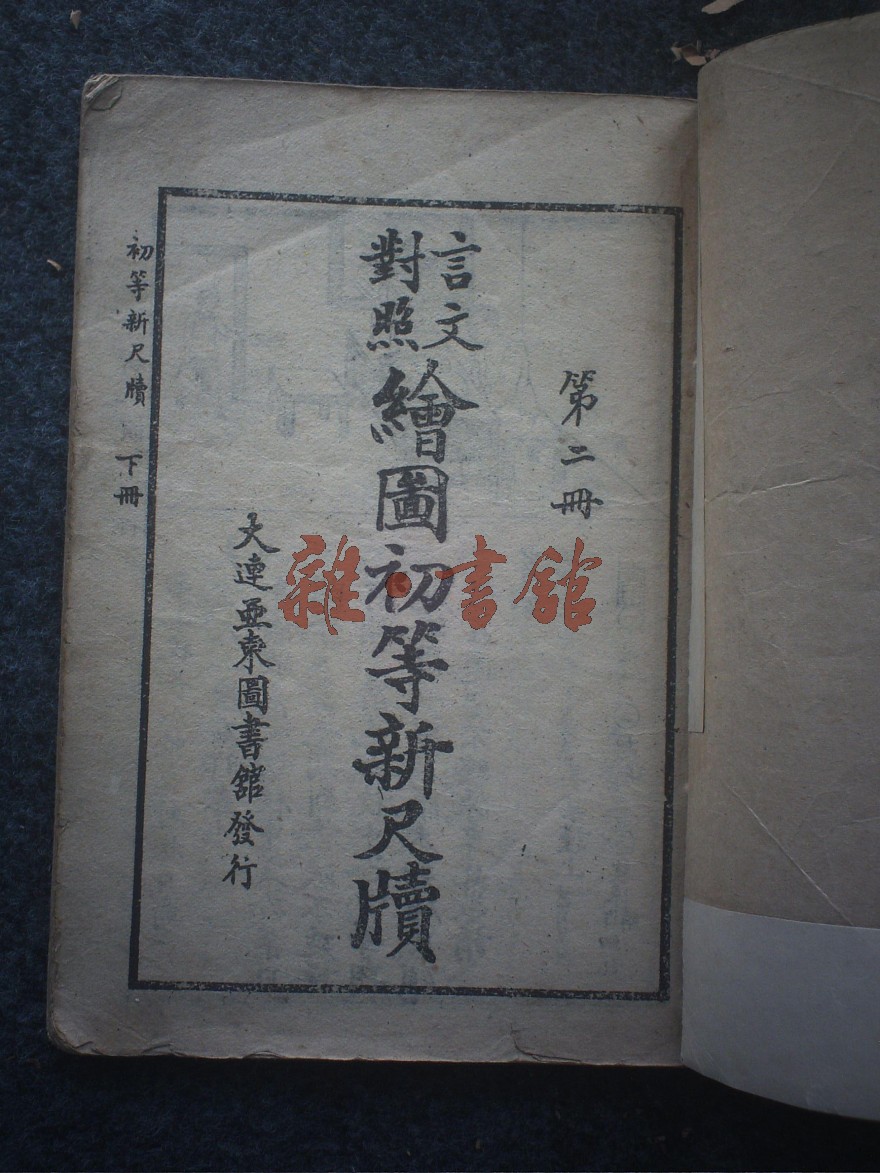 第二冊
言文
對照
繪圖初等新尺牘
大連亜東圖書館發行
初等新尺牘 下冊
雜書館